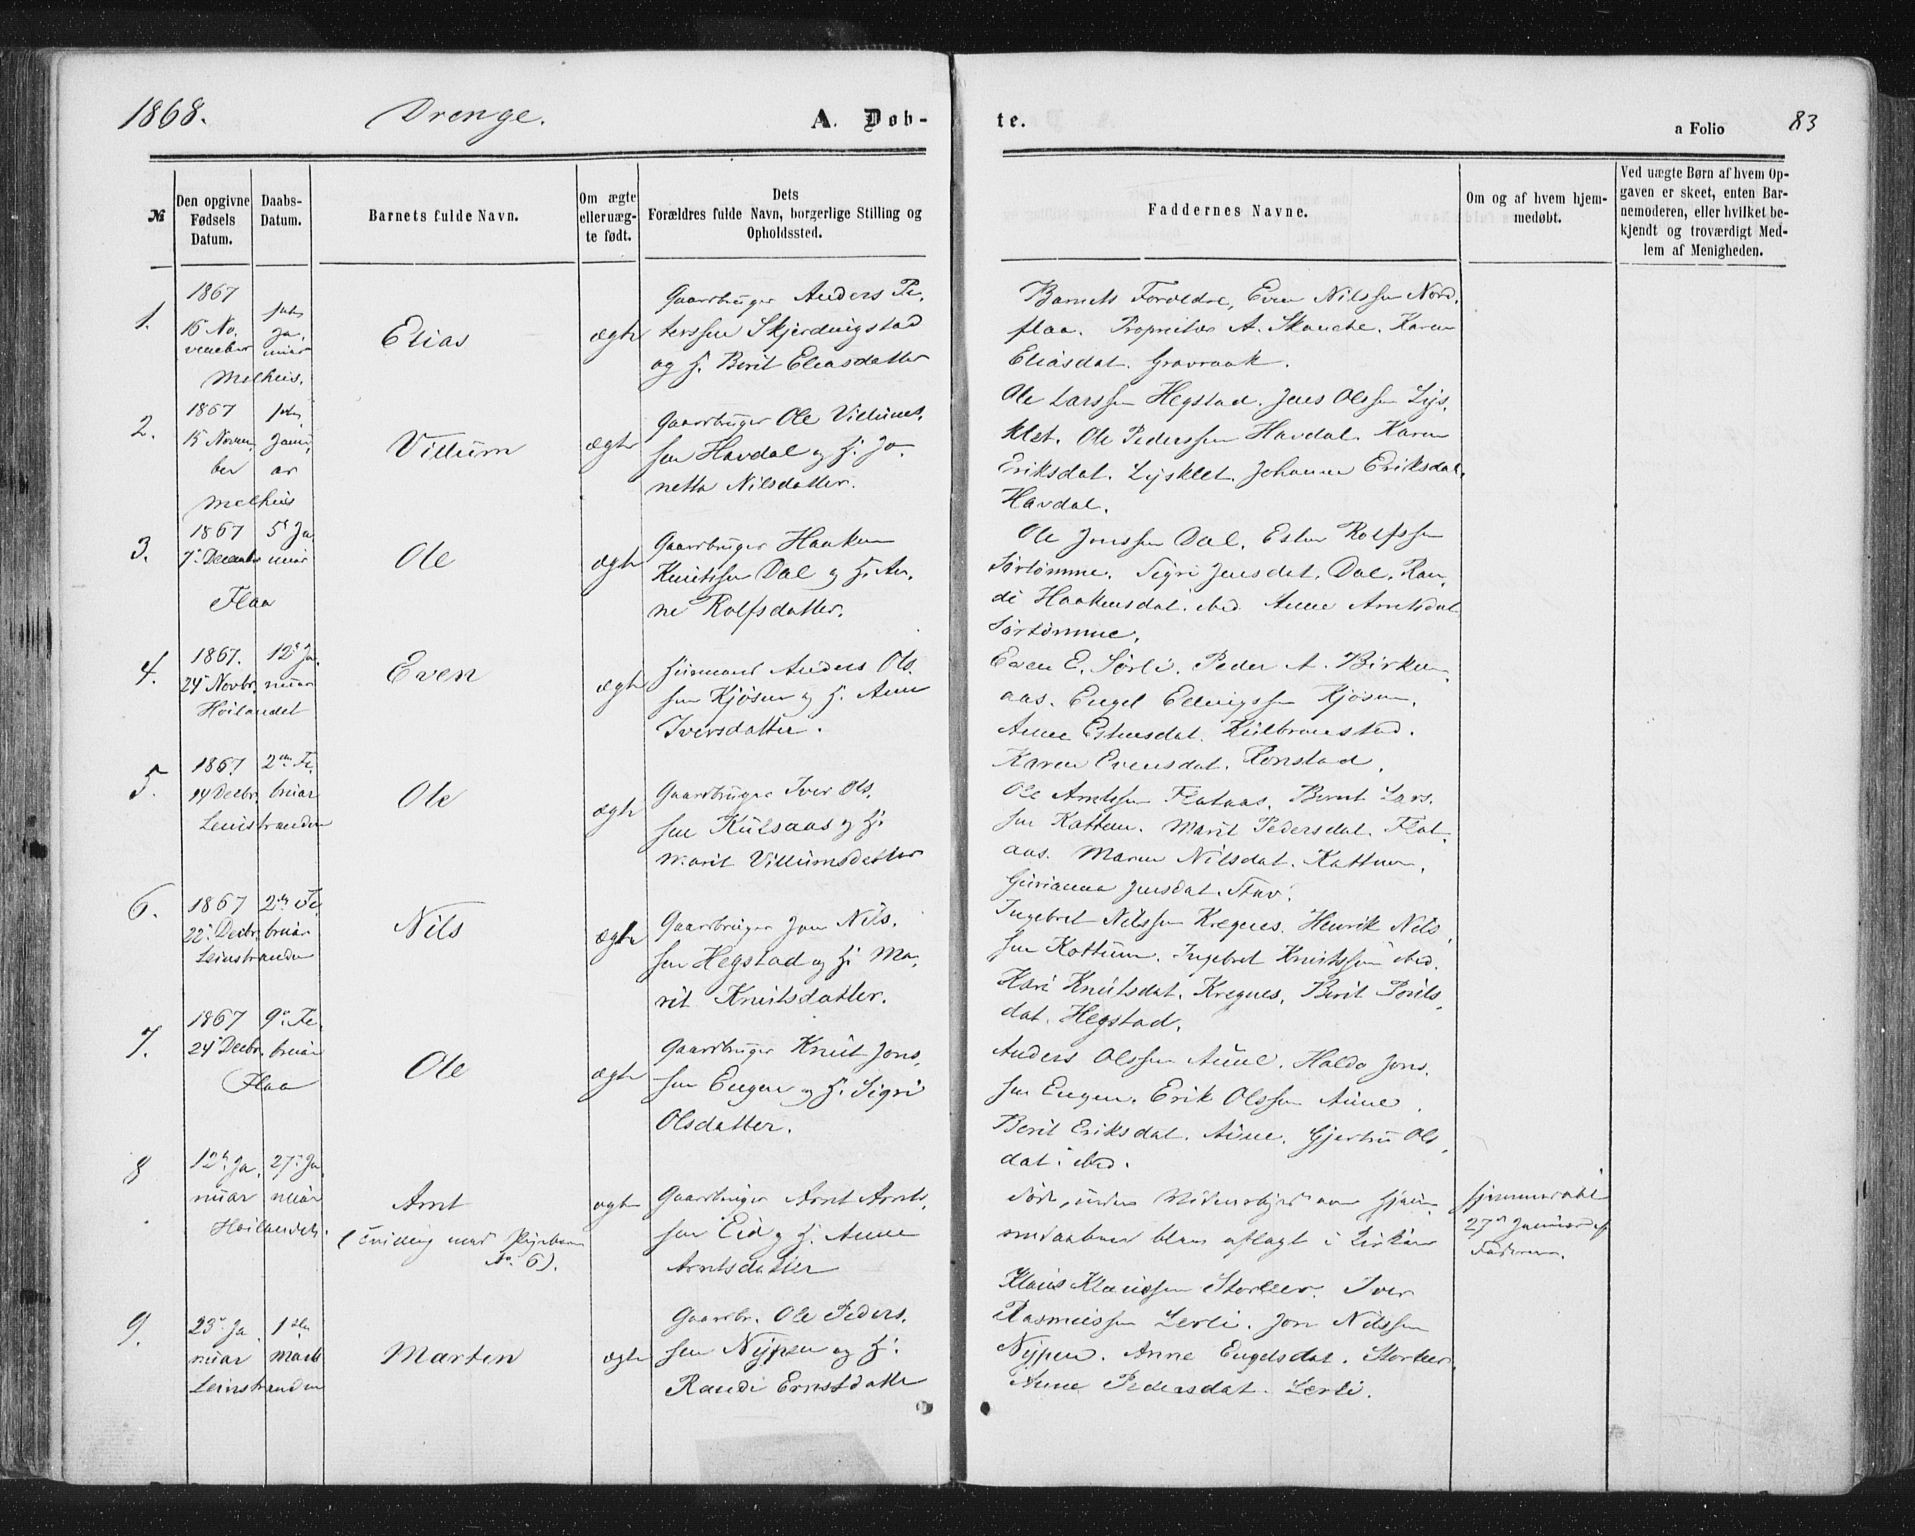 1868. Drenge. A. Døb-
te. a Folio 83
№
Den opgivne
Fødsels
Datum.
Daabs-
Datum.
Barnets fulde Navn.
Om ægte
eller uæg-
te født.
Dets
Forældres fulde Navn, borgerlige Stilling og
Opholdssted.
Faddernes Navne.
Om og af hvem hjem-
medøbt.
Ved uægte Børn af hvem Op-
gaven er skeet, enten Bar-
nemoderen, eller hvilket be-
kjendt og troværdigt Med-
lem af Menigheden.
1.
1867
15 No.
vember
1ste
Ja.
nuar
Melhus.
Elias
ægte
Gaardbruger Anders Pe.
terssen Skjerdingstad
og H. Berit Eliasdatter
Barnets Forældre, Even Nilssen Nord.
flaa. Proprietær A. Skanche. Karen
Eliasdat. Gravraak.
2.
1867
15 Novem
ber
1ste
Janu
ar
Melhus
Villum
ægte
Gaardbruger Ole Villums.
sen Havdal og H. Jo.
netta Nilsdatter.
Ole Larssen Hegstad. Jens Olssen Lys.
klet. Ole Pederssen Havdal. Karen
Eriksdat. Lysklet. Johanna Eriksdat.
Havdal.
3.
1867
7de Decembr
5te Ja
nuar
Flaa
Ole
ægte
Gaardbruger Haaken
Knutssen Dal og H. An.
ne Rolfsdatter.
Ole Jonssen Dal. Esten Rolfssen
Sørtømme. Sigri Jensdat. Dal. Ran.
di Haakensdat. ibid. Anne Arntsdat
Sørtømme.
4.
1867.
24de Novbr.
12te Ja.
nuar
Høilandet
Even
ægte
Huusmand Anders Ols.
sen Kjøsen og H. Anne
Iversdatter.
Even E. Sørli. Peder A. Birken.
aas. Engel Ellingssen Kjøsen.
Anne Estensdat. Kulbranstad.
Karen Evensdat. Ronstad.
5.
1867.
14 Decbr.
2den Fe.
bruar
Leinstranden
Ole
ægte
Gaardbruger Iver Ols.
sen Kulsaas og H.
Marit Villumsdatter
Ole Arntssen Flataas. Bernt Lars.
sen Kattem. Marit Pedersdat. Flat.
aas. Maren Nilsdat. Kattem.
Gurianna Jensdat. Stav.
6.
1867
22de Decbr.
2den Fe.
bruar
Leinstranden
Nils
ægte
Gaardbruger Jon Nils.
sen Hegstad og H. Ma.
rit Knutsdatter.
Ingebret Nilssen Kregnes. Henrik Nils.
sen Kattem. Ingebret Knutssen ibid.
Kari Knutsdat. Kregnes. Berit Pouls.
dat. Hegstad.
7.
1867
24de Decbr.
9de Fe.
bruar
Flaa
Ole
ægte
Gaardbruger Knut Jons.
sen Engen og H. Sigri
Olsdatter.
Anders Olssen Aune. Haldo Jons.
sen Engen. Erik Olssen Aune.
Berit Eriksdat. Aune. Gjertru Ols.
dat. ibid.
8
12te Ja.
nuar
27de Ja
nuar
Høilandet.
Arnt
(Tvilling med Pigebarn
No. 6).
ægte
Gaardbruger Arnt Arnts.
sen Eid og H. Anne
Arntsdatter
Død, inden Vidnesbyrd om Hjem.
medaaben blev aflagt i Kirken
Hjemmedøbt
27de Januar af
Faderen.
9.
23de Ja.
nuar
1ste
Marts
Leinstranden
Marten
ægte
Gaardbr. Ole Peders.
sen Nypen og H.
Randi Ernstdatter
Klaus Klaussen Storler. Iver
Rasmussen Lerli. Jon Nilssen
Nypen. Anne Engelsdat. Storler.
Anne Pedersdat. Lerli.